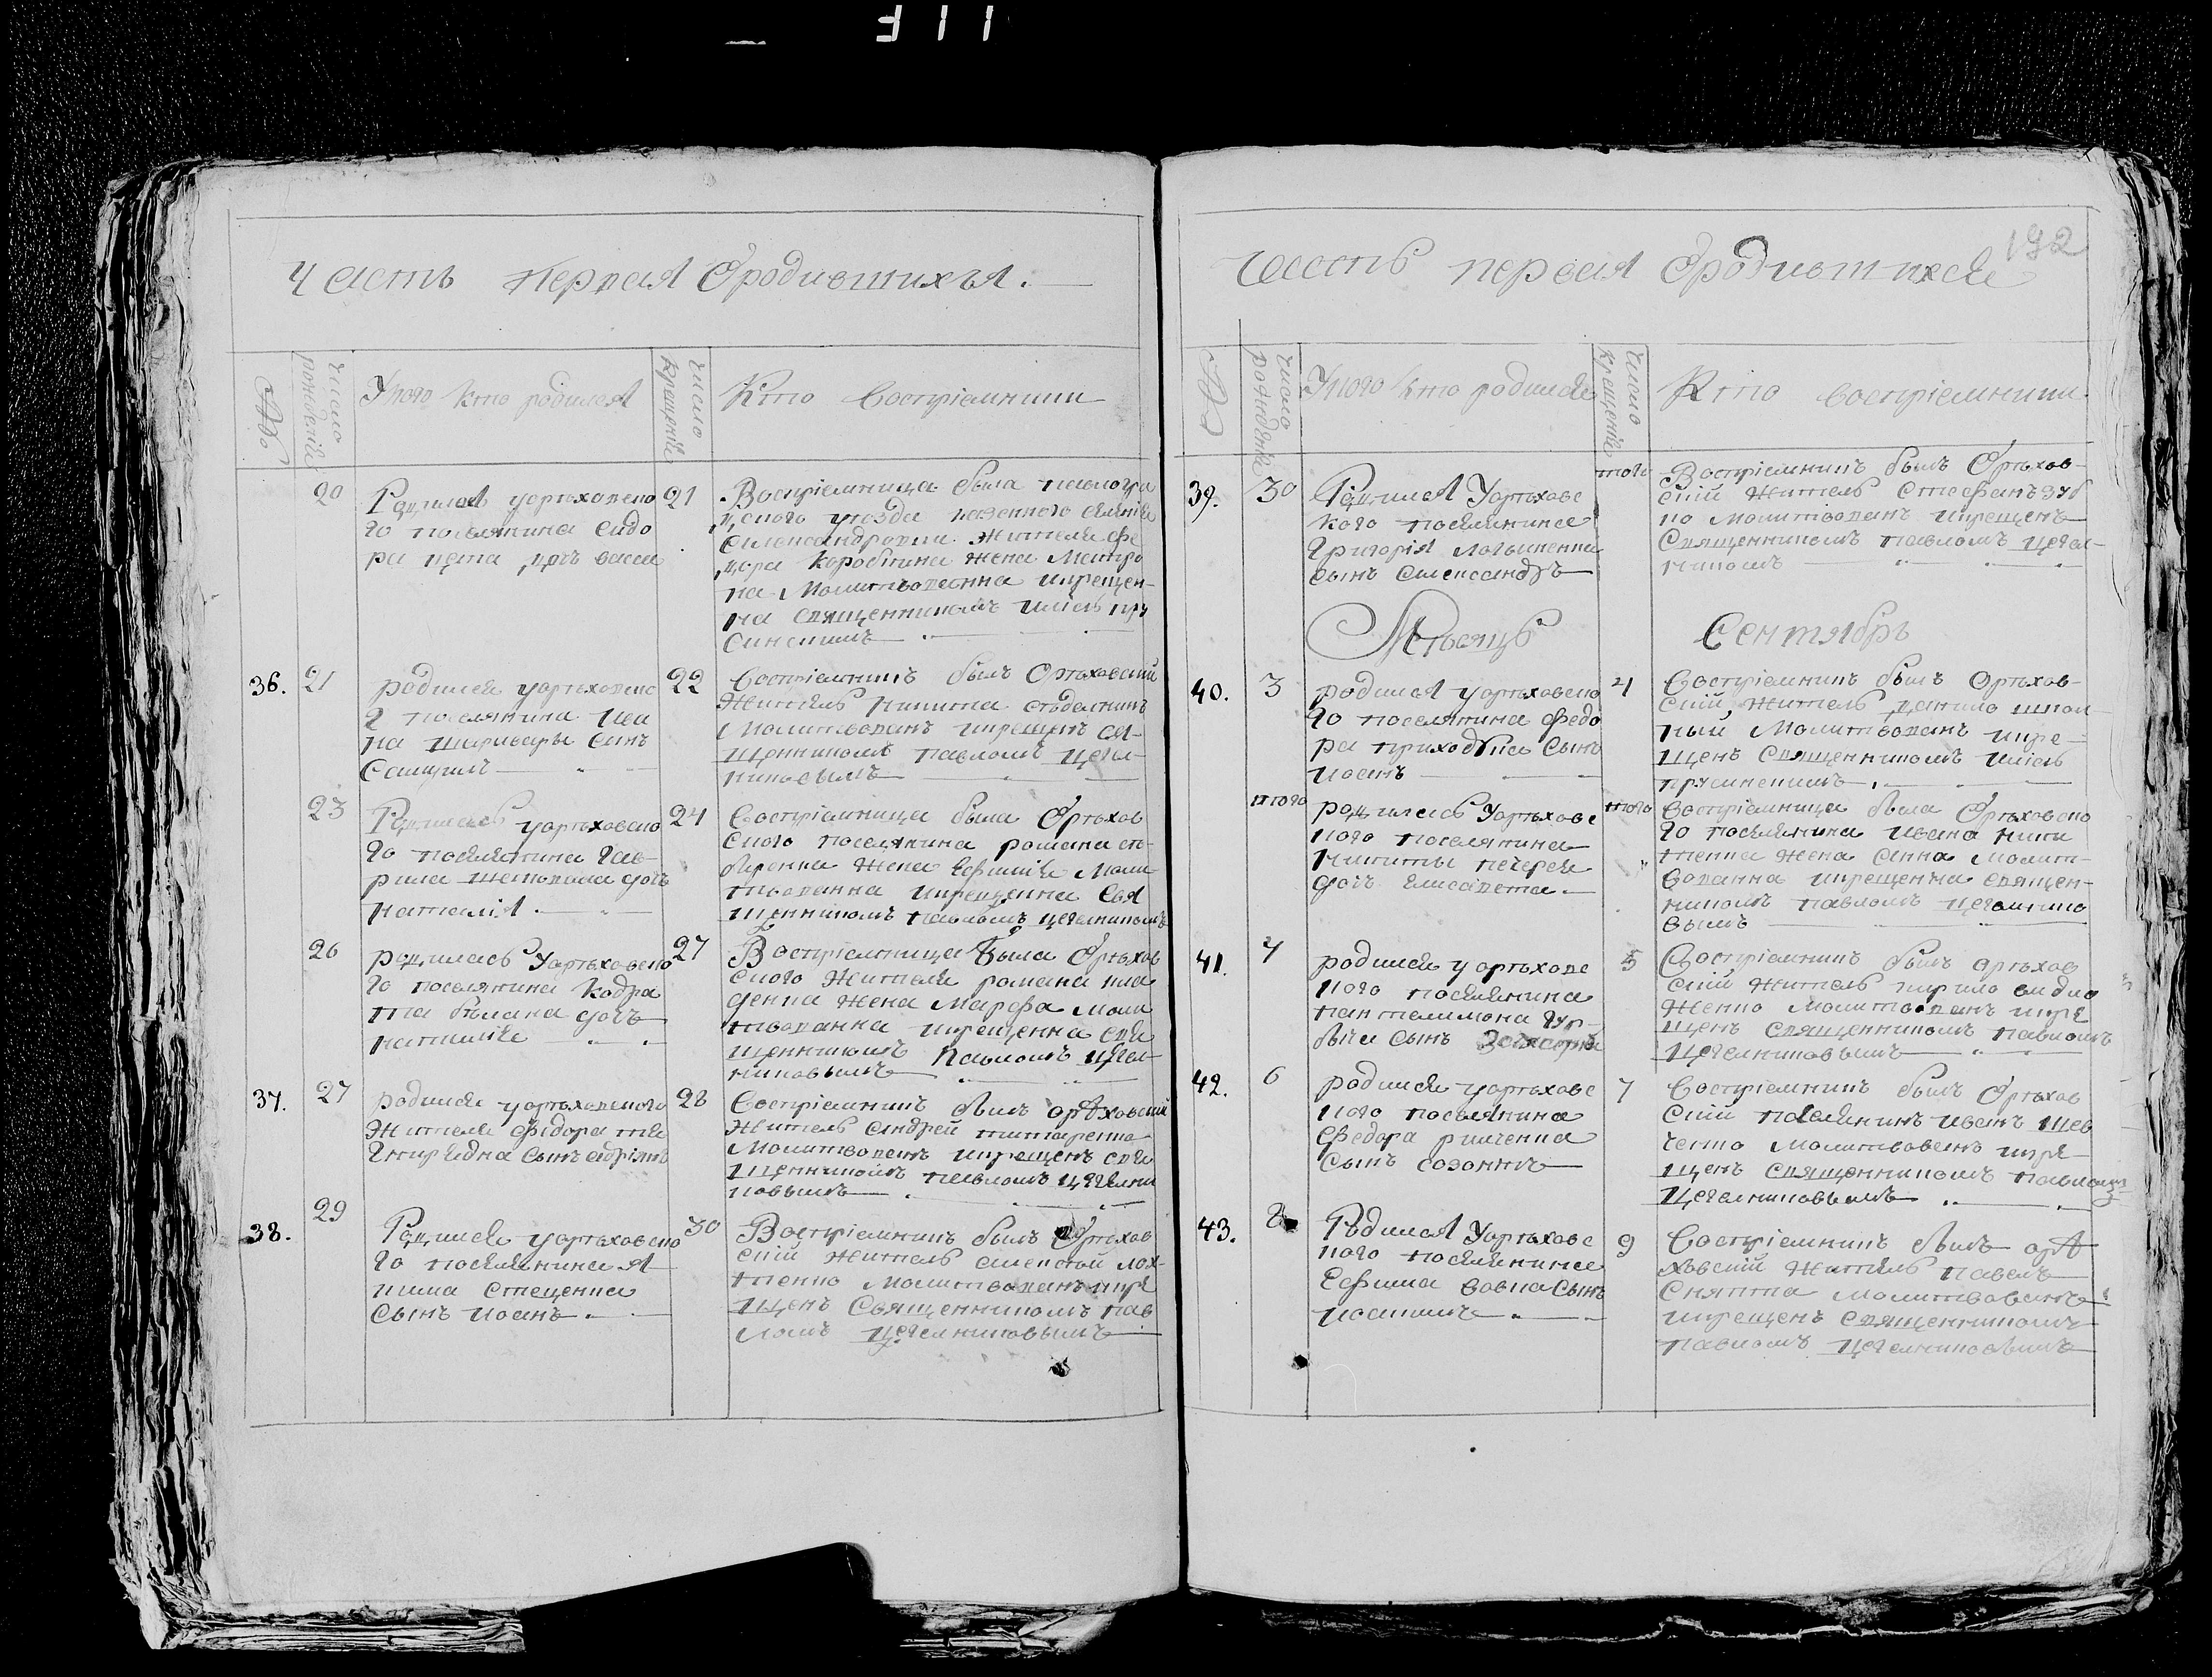 Часть первая о родившихъя.
№
число рождения
У кого кто родился
число крещение
Кто восприемники
20
Родилась у орѣховско
го поселянина Сидо
ра цепа дочь васса
21
Восприемница была павлогра
дского уѣзда казенного селения
Александровки жителя Фе
дора Коробкина жена Матро
на Молитвованна икрещен-
на священникомъ
36.
21
родился уорѣховско
г поселянина Ива
на шкривары Сынъ
22
Восприемникъ былъ Орѣховский
Житель Никита
Молитвованъ икрещенъ свя-
щенникомъ павломъ цегел-
никовымъ
23
Родилась уорѣховско
го поселянина гав-
рила шаповала дочь
наталия
24
Восприемница была Орѣхов
ского поселянина романа
жена Евфимия Моли
твованна икрещенна Свя
щенникомъ павломъ цегелником
26
родилась Уорѣховско
го поселянина Кодра
та бѣлана дочь
наталие
27
Восприемница была Орѣхов
ского Жителя романа
жена Марфа Моли
твованна икрещенна свя
щенникомъ павломъ цегел-
никовымъ
37.
27
родился уорѣховского
Жителя Фёдора тя
гнирядна сынъ адриянъ
28
Восприемникъ былъ орѣховский
Житель андрей титаренко
Молитвованъ икрещенъ свя
щенникомъ павломъ цегелни
ковымъ
38.
29
Родился уорѣховско
го поселянина я
кима стеценка
сынъ иоанъ
30
Восприемникъ былъ Орѣхов
ский житель алексѣй лох-
тенко Молитвованъ икре
щенъ Священникомъ пав
ломъ цегелниковымъ
192
Часть первая о родившихся
№
число рождение
У кого кто родился
число крещение
Кто восприемники
39.
30
Родился Уорѣховс
кого поселянина
григория логвиненка
сынъ александръ
того
Восприемникъ былъ Орѣхов-
ский житель Стефанъ зуб
ко Молитвованъ икрещенъ
Священникомъ павломъ цегел-
никомъ
Мѣсяцъ
Сентябрь
40.
3
родился уорѣховско
го поселянина федо
ра приходька сынъ
иоанъ
4
Восприемникъ былъ орѣхов-
ский Житель данило
Молитвованъ икре-
щенъ Священникомъ
того
родилась Уорѣховс
кого поселянина
Никиты печерея
дочь елисавета
того
Восприемница была Орѣховско
го поселянина ивана ники
тенка жена анна молит-
вованна икрещенна священ-
никомъ павломъ цегелнико
вымъ
41.
4
родился уорѣховс
кого поселянина
пантелимона гур-
бича сынъ Захария
5
Восприемникъ былъ орѣхов
ский житель кирило
Молитвованъ икре
щенъ священникомъ павломъ
Цегелниковымъ
42.
6
родился уорѣховс
кого поселянина
федора
сынъ созонтъ
7
Восприемникъ былъ Орѣхов
ский поселянинъ иванъ шев
ченко Молитвованъ икре
щенъ священникомъ павломъ
Цегелниковымъ
43.
8
Родился Уорѣховс
кого поселянина
Ефима вовка сынъ
иоакимъ
9
Восприемникъ былъ орѣ
ховский Житель павелъ
Снятка Молитвованъ
икрещенъ священникомъ
павломъ цегелниковымъ